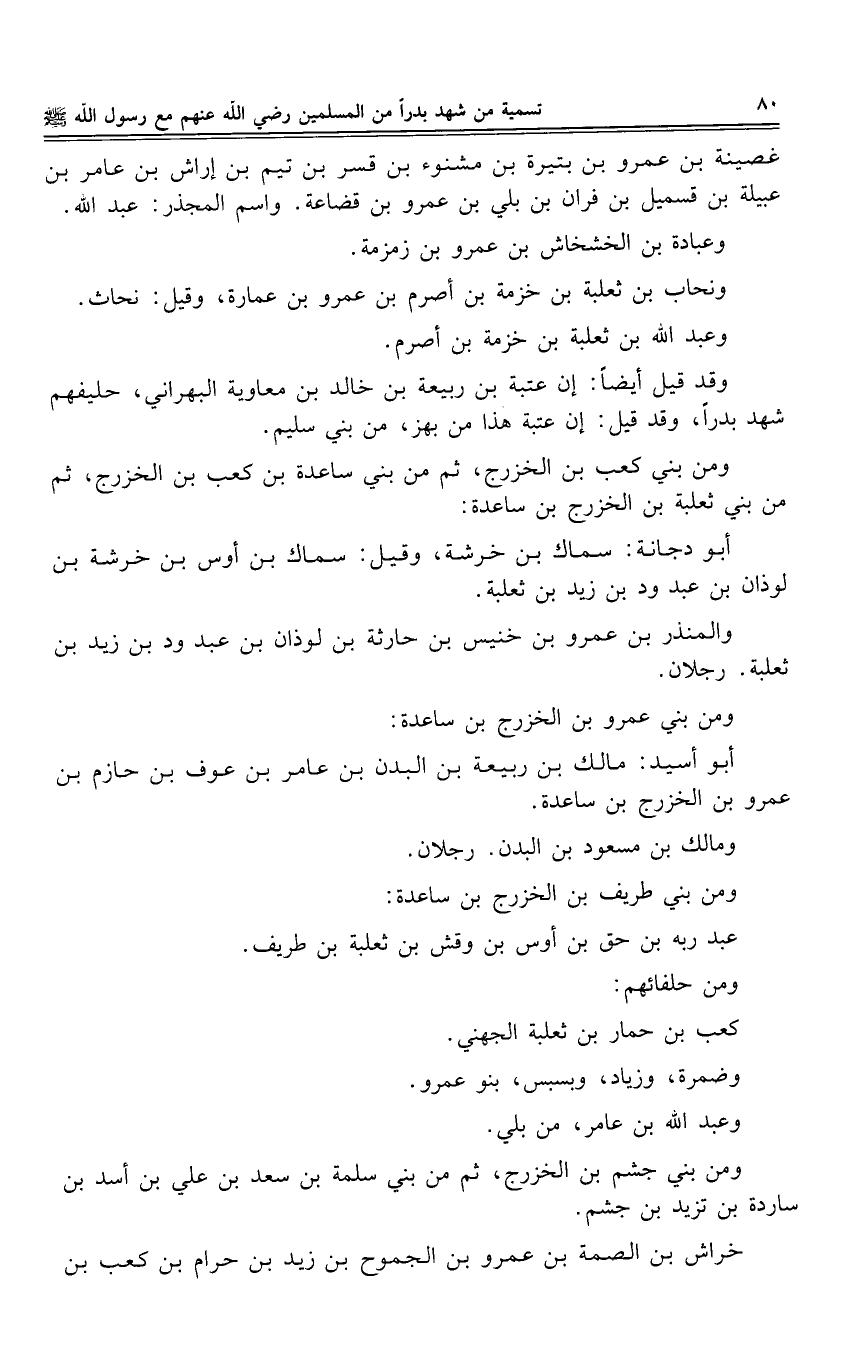 ٨٠ تسمية من شهد بدراً من المسلمين رضي الله عنهم مع رسول الله ﷺ
غصينة بن عمرو بن بتيرة بن مشنوء بن قسر بن تيم بن إراش بن عامر بن
عبيلة بن قسميل بن فران بن بلي بن عمرو بن قضاعة. واسم المجذر: عبد الله.
وعبادة بن الخشخاش بن عمرو بن زمزمة.
ونحاب بن ثعلبة بن خزمة بن أصرم بن عمرو بن عمارة، وقيل: نحاث.
وعبد الله بن ثعلبة بن خزمة بن أصرم.
وقد قيل أيضاً: إن عتبة بن ربيعة بن خالد بن معاوية البهراني، حليفهم
شهد بدراً، وقد قيل: إن عتبة هذا من بهز، من بني سليم.
ومن بني كعب بن الخزرج، ثم من بني ساعدة بن كعب بن الخزرج، ثم
من بني ثعلبة بن الخزرج بن ساعدة:
أبو دجانة: سماك بن خرشة، وقيل: سماك بن أوس بن خرشة بن
لوذان بن عبد ود بن زيد بن ثعلبة.
والمنذر بن عمرو بن خنيس بن حارثة بن لوذان بن عبد ود بن زيد بن
ثعلبة. رجلان.
ومن بني عمرو بن الخزرج بن ساعدة:
أبو أسيد: مالك بن ربيعة بن البدن بن عامر بن عوف بن حازم بن
عمرو بن الخزرج بن ساعدة.
ومالك بن مسعود بن البدن. رجلان.
ومن بني طريف بن الخزرج بن ساعدة:
عبد ربه بن حق بن أوس بن وقش بن ثعلبة بن طريف.
ومن حلفائهم:
كعب بن حمار بن ثعلبة الجهني.
وضمرة، وزياد، وبسبس، بنو عمرو.
وعبد الله بن عامر، من بلي.
ومن بني جشم بن الخزرج، ثم من بني سلمة بن سعد بن علي بن أسد بن
ساردة بن تزيد بن جشم.
خراش بن الصمة بن عمرو بن الجموح بن زيد بن حرام بن كعب بن